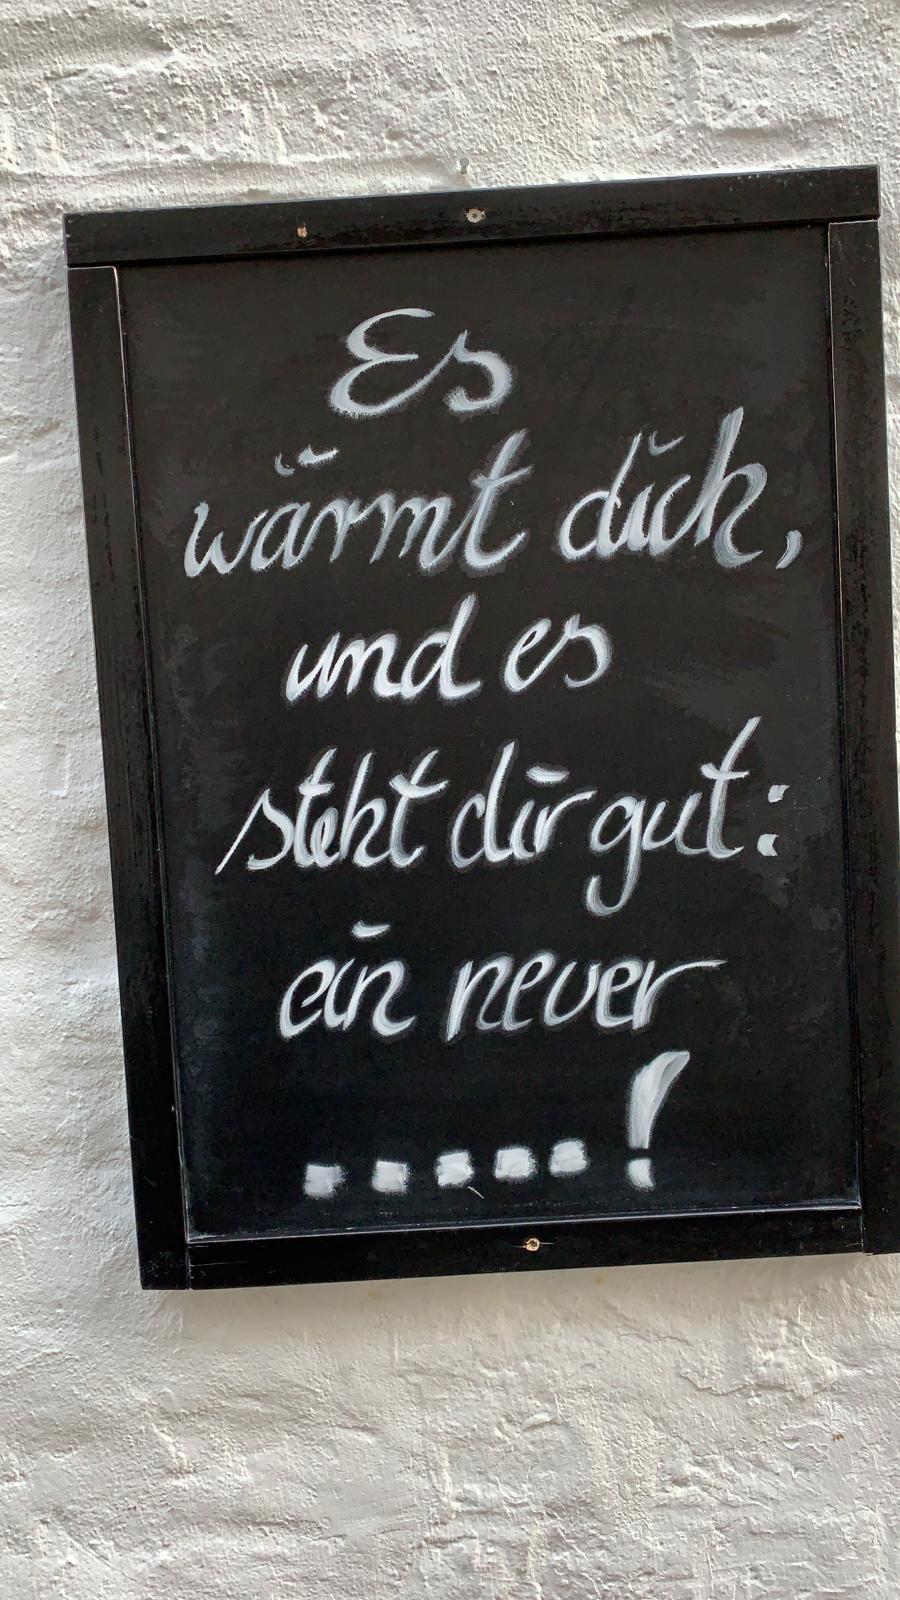 Es
wärmt dich,
und es
steht dir gut:
ein neuer
.....!